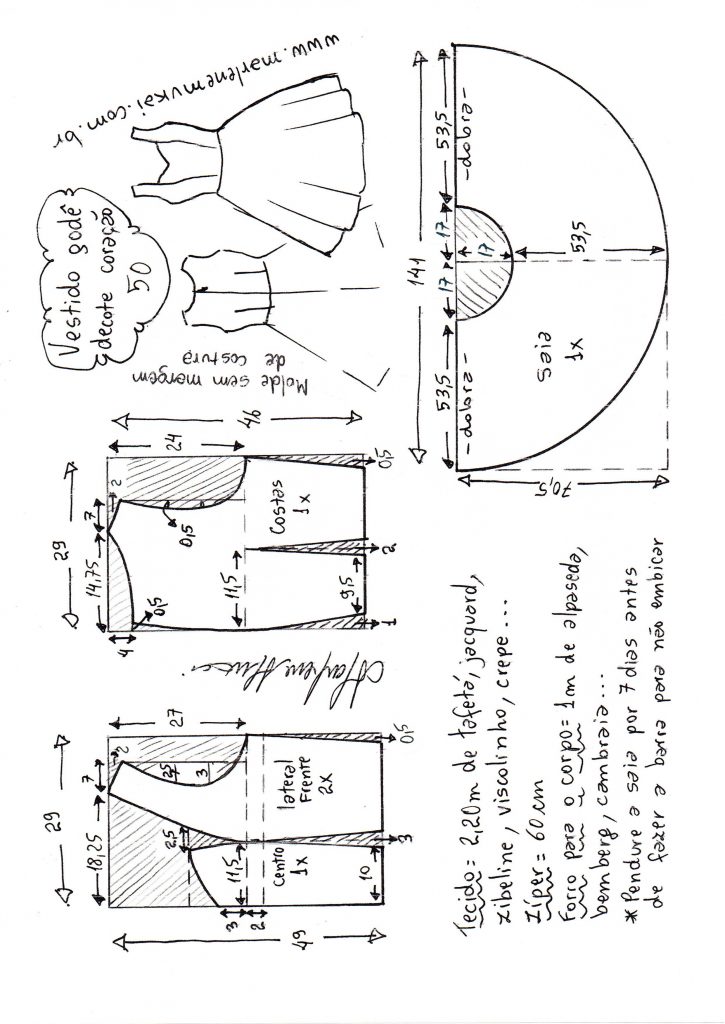 www.marlenemukai.com.br
Vestido godê
decote coração
50
Molde sem margem
de costura
46
24
29
7
2
14,75
0,5
0,5
4
11,5
Costas
1x
9,5
0,5
2
1
27
29
7
2
18,25
2,5
3
2,5
lateral
Frente
2x
11,5
Centro
1x
10
0,5
3
3
2
49
141
53,5
-dobra-
17
17
17
53,5
53,5
-dobra-
saia
1x
70,5
Tecido = 2,20m de tafetá, jacquard,
zibeline, viscolinho, crepe...
Zíper = 60cm
Forro para o corpo = 1m de alpaseda,
bemberg, cambraia...
*Pendure a saia por 7 dias antes
de fazer a barra para não embicar